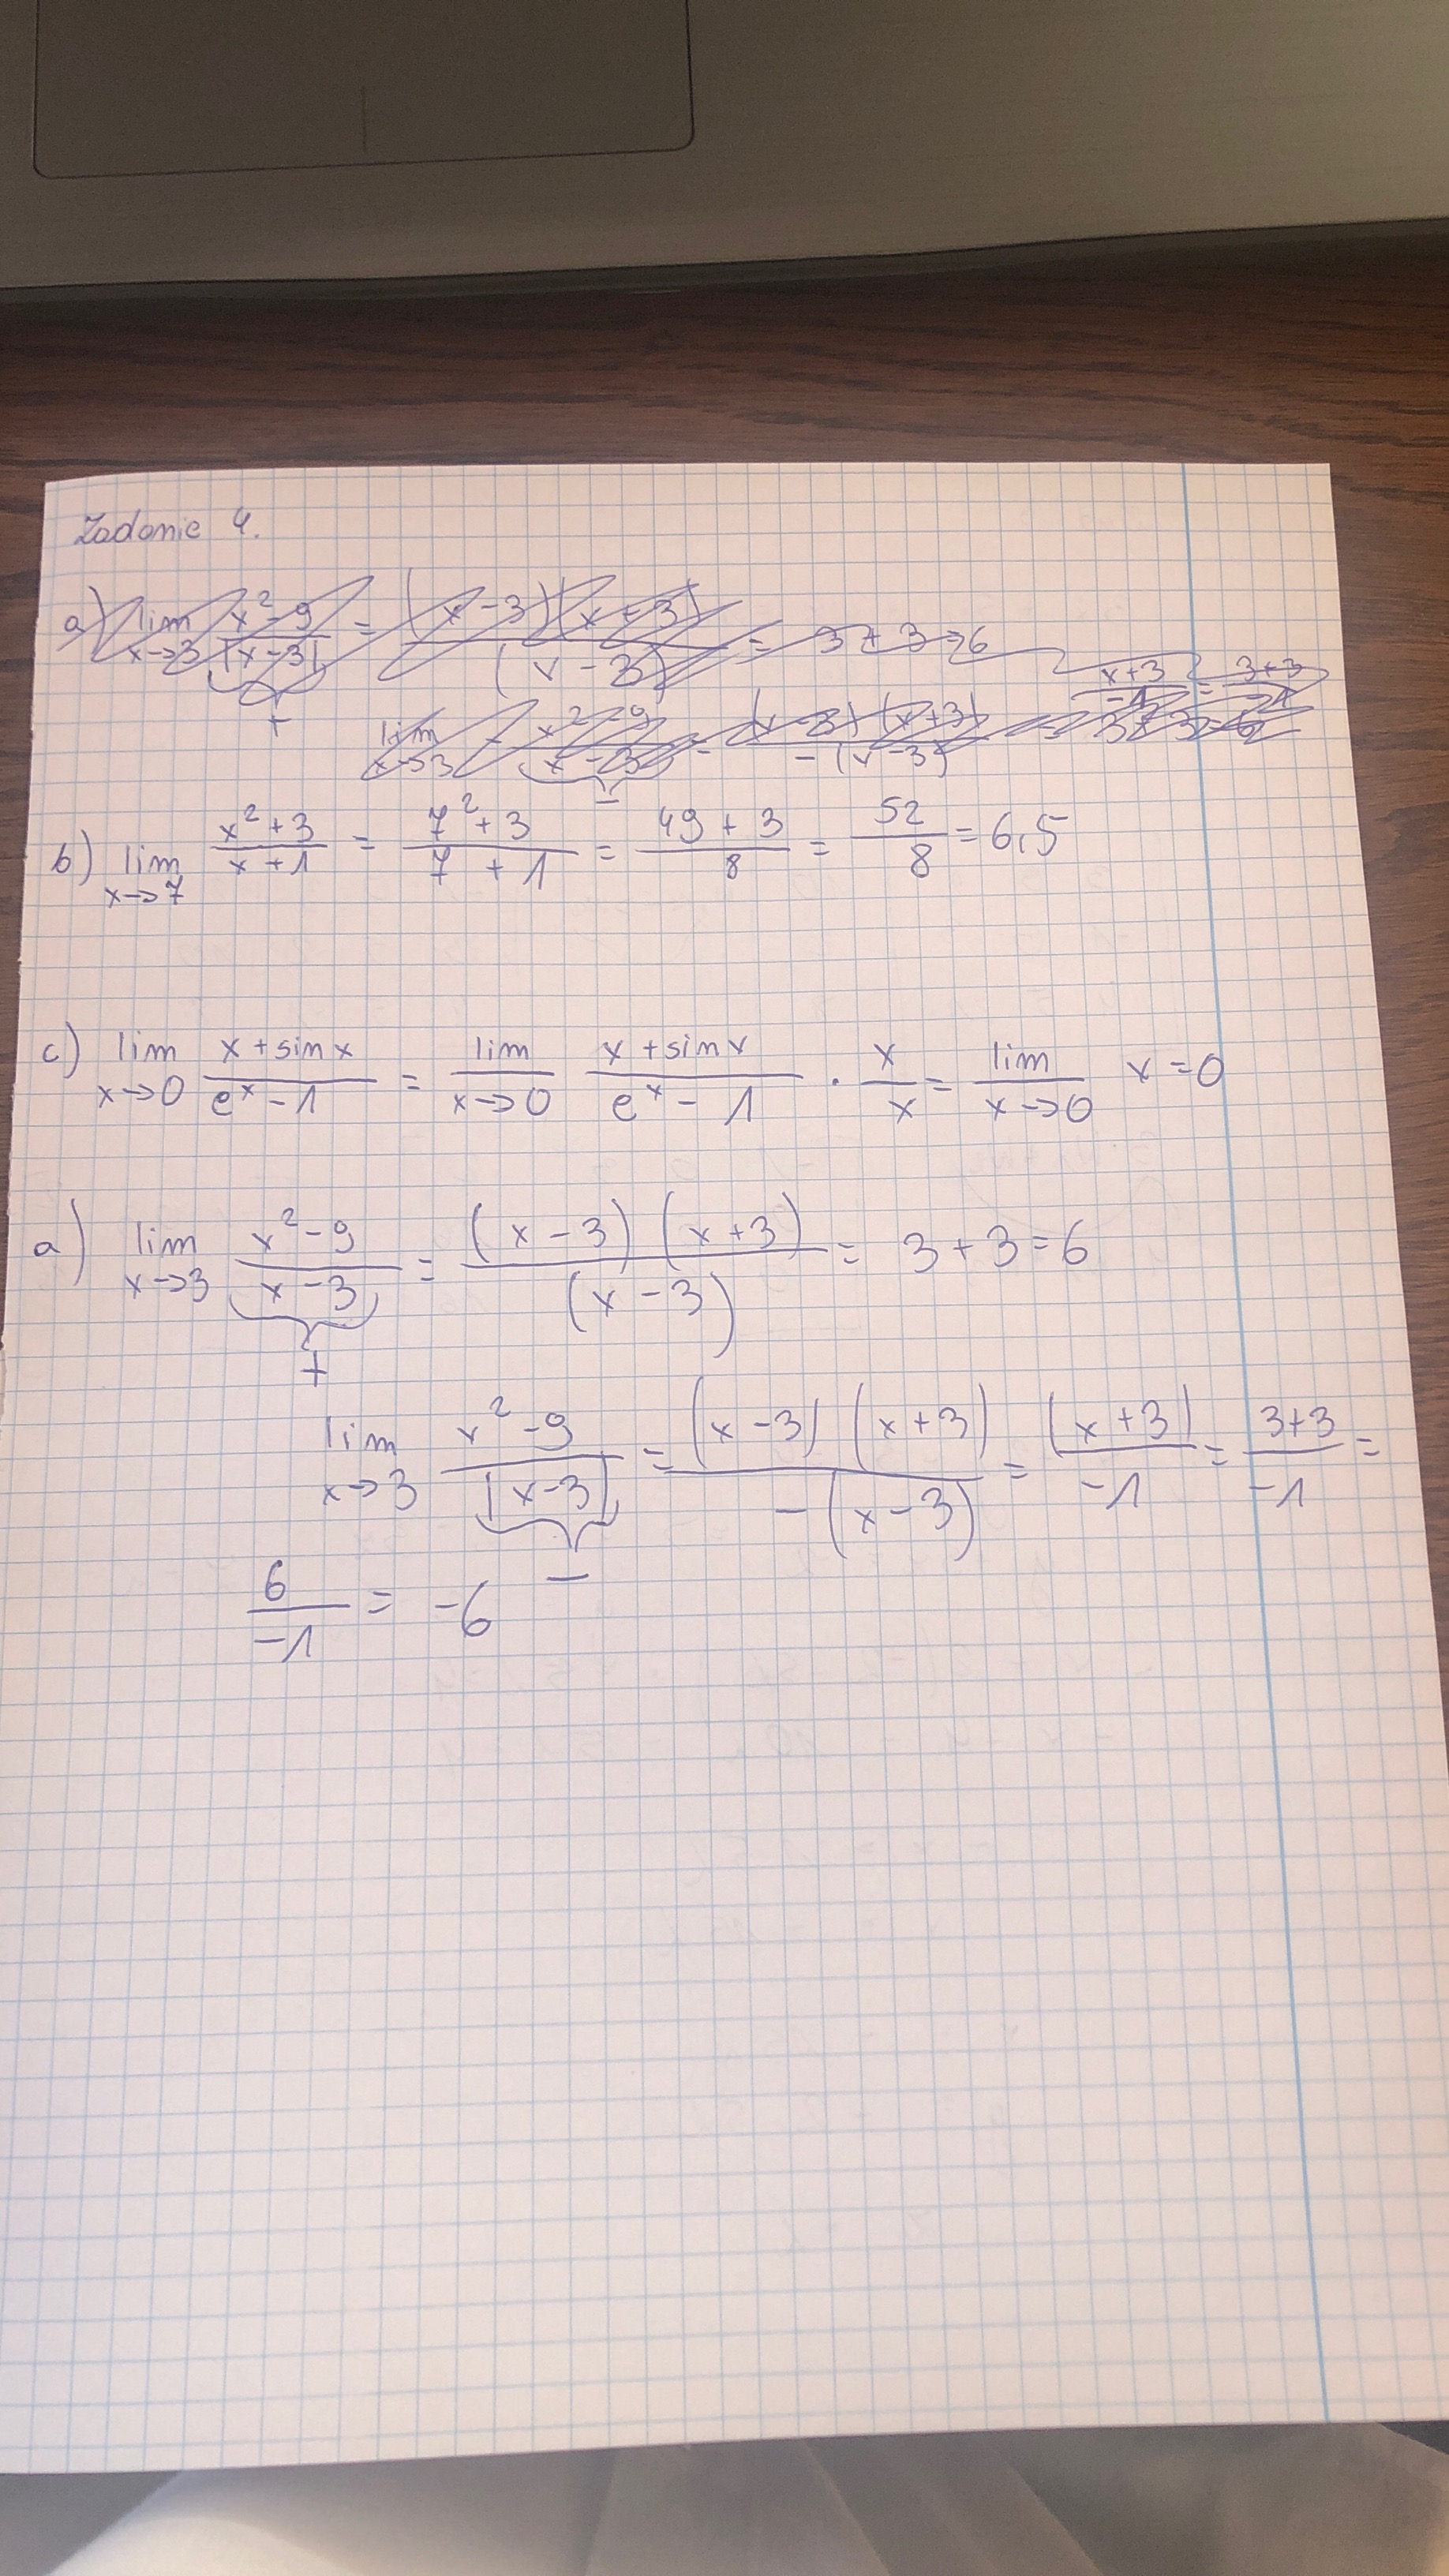 Zadanie 4.
a) lim x→3 x²-9 / |x-3| = (x-3)(x+3) / (x-3) = 3+3=6
+
lim x→3 x²-9 / x-3 = (x-3)(x+3) / -(x-3) = x+3 / -1 = 3+3 / -1
3+3=6
-
b) lim x→7 x²+3 / x+1 = 7²+3 / 7+1 = 49+3 / 8 = 52 / 8 = 6,5
c) lim x→0 x+sinx / eˣ-1 = lim x→0 x+sinx / eˣ-1 · x / x = lim x→0 x=0
a) lim x→3 x²-9 / x-3 = (x-3)(x+3) / (x-3) = 3+3=6
+
lim x→3 x²-9 / |x-3| = (x-3)(x+3) / -(x-3) = (x+3) / -1 = 3+3 / -1 =
-
6 / -1 = -6